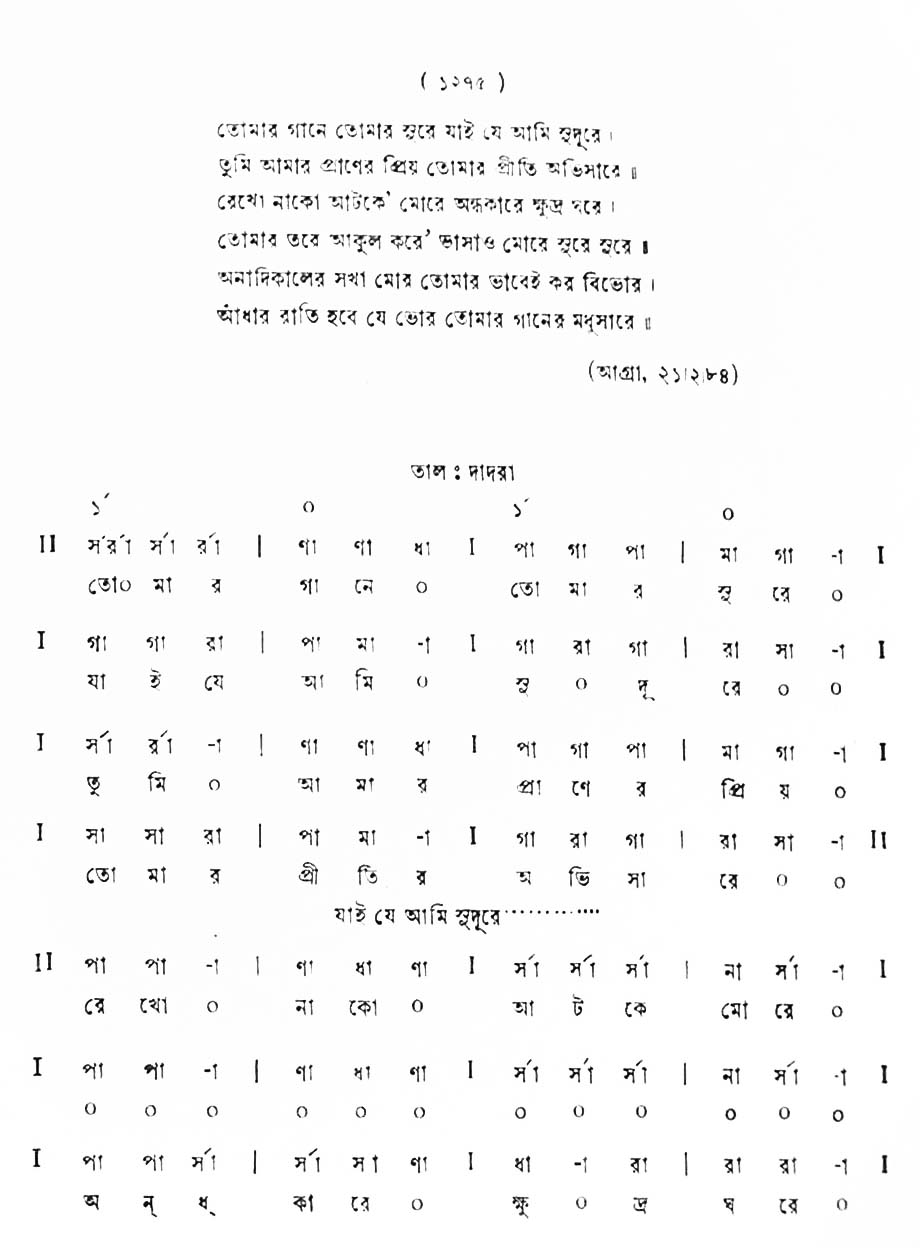 ( ১২৭৫ )
তোমার গানে তোমার সুরে যাই যে আমি সুদূরে।
তুমি আমার প্রাণের প্রিয় তোমার প্রীতি অভিসারে॥
রেখো নাকো আটকে’ মোরে অন্ধকারে ক্ষুদ্র ঘরে।
তোমার তরে আকুল করে’ ভাসাও মোরে সুরে সুরে॥
অনাদিকালের সখা মোর তোমার ভাবেই কর বিভোর।
আঁধার রাতি হবে যে ভোর তোমার গানের মধুসারে॥
(আগ্রা, ২১।২।৮৪)
তাল : দাদরা
১´ ০ ১´ ০
II র্সর্রা র্সা র্রা | ণা ণা ধা I পা গা পা | মা গা -া I
তো০ মা র গা নে ০ তো মা র সু রে ০
I গা গা রা | পা মা -া I গা রা গা | রা সা -া I
যা ই যে আ মি ০ সু ০ দূ রে ০ ০
I র্সা র্রা -া | ণা ণা ধা I পা গা পা | মা গা -া I
তু মি ০ আ মা র প্রা ণে র প্রি য় ০
I সা সা রা | পা মা -া I গা রা গা | রা সা -া II
তো মা র প্রী তি র অ ভি সা রে ০ ০
যাই যে আমি সুদূরে············
II পা পা -া | ণা ধা ণা I র্সা র্সা র্সা | না র্সা -া I
রে খো ০ না কো ০ আ ট কে মো রে ০
I পা পা -া | ণা ধা ণা I র্সা র্সা র্সা | না র্সা -া I
০ ০ ০ ০ ০ ০ ০ ০ ০ ০ ০ ০
I পা পা র্সা | র্সা সা ণা I ধা -া রা | রা রা -া I
অ ন্ ধ্ কা রে ০ ক্ষু ০ দ্র ঘ রে ০